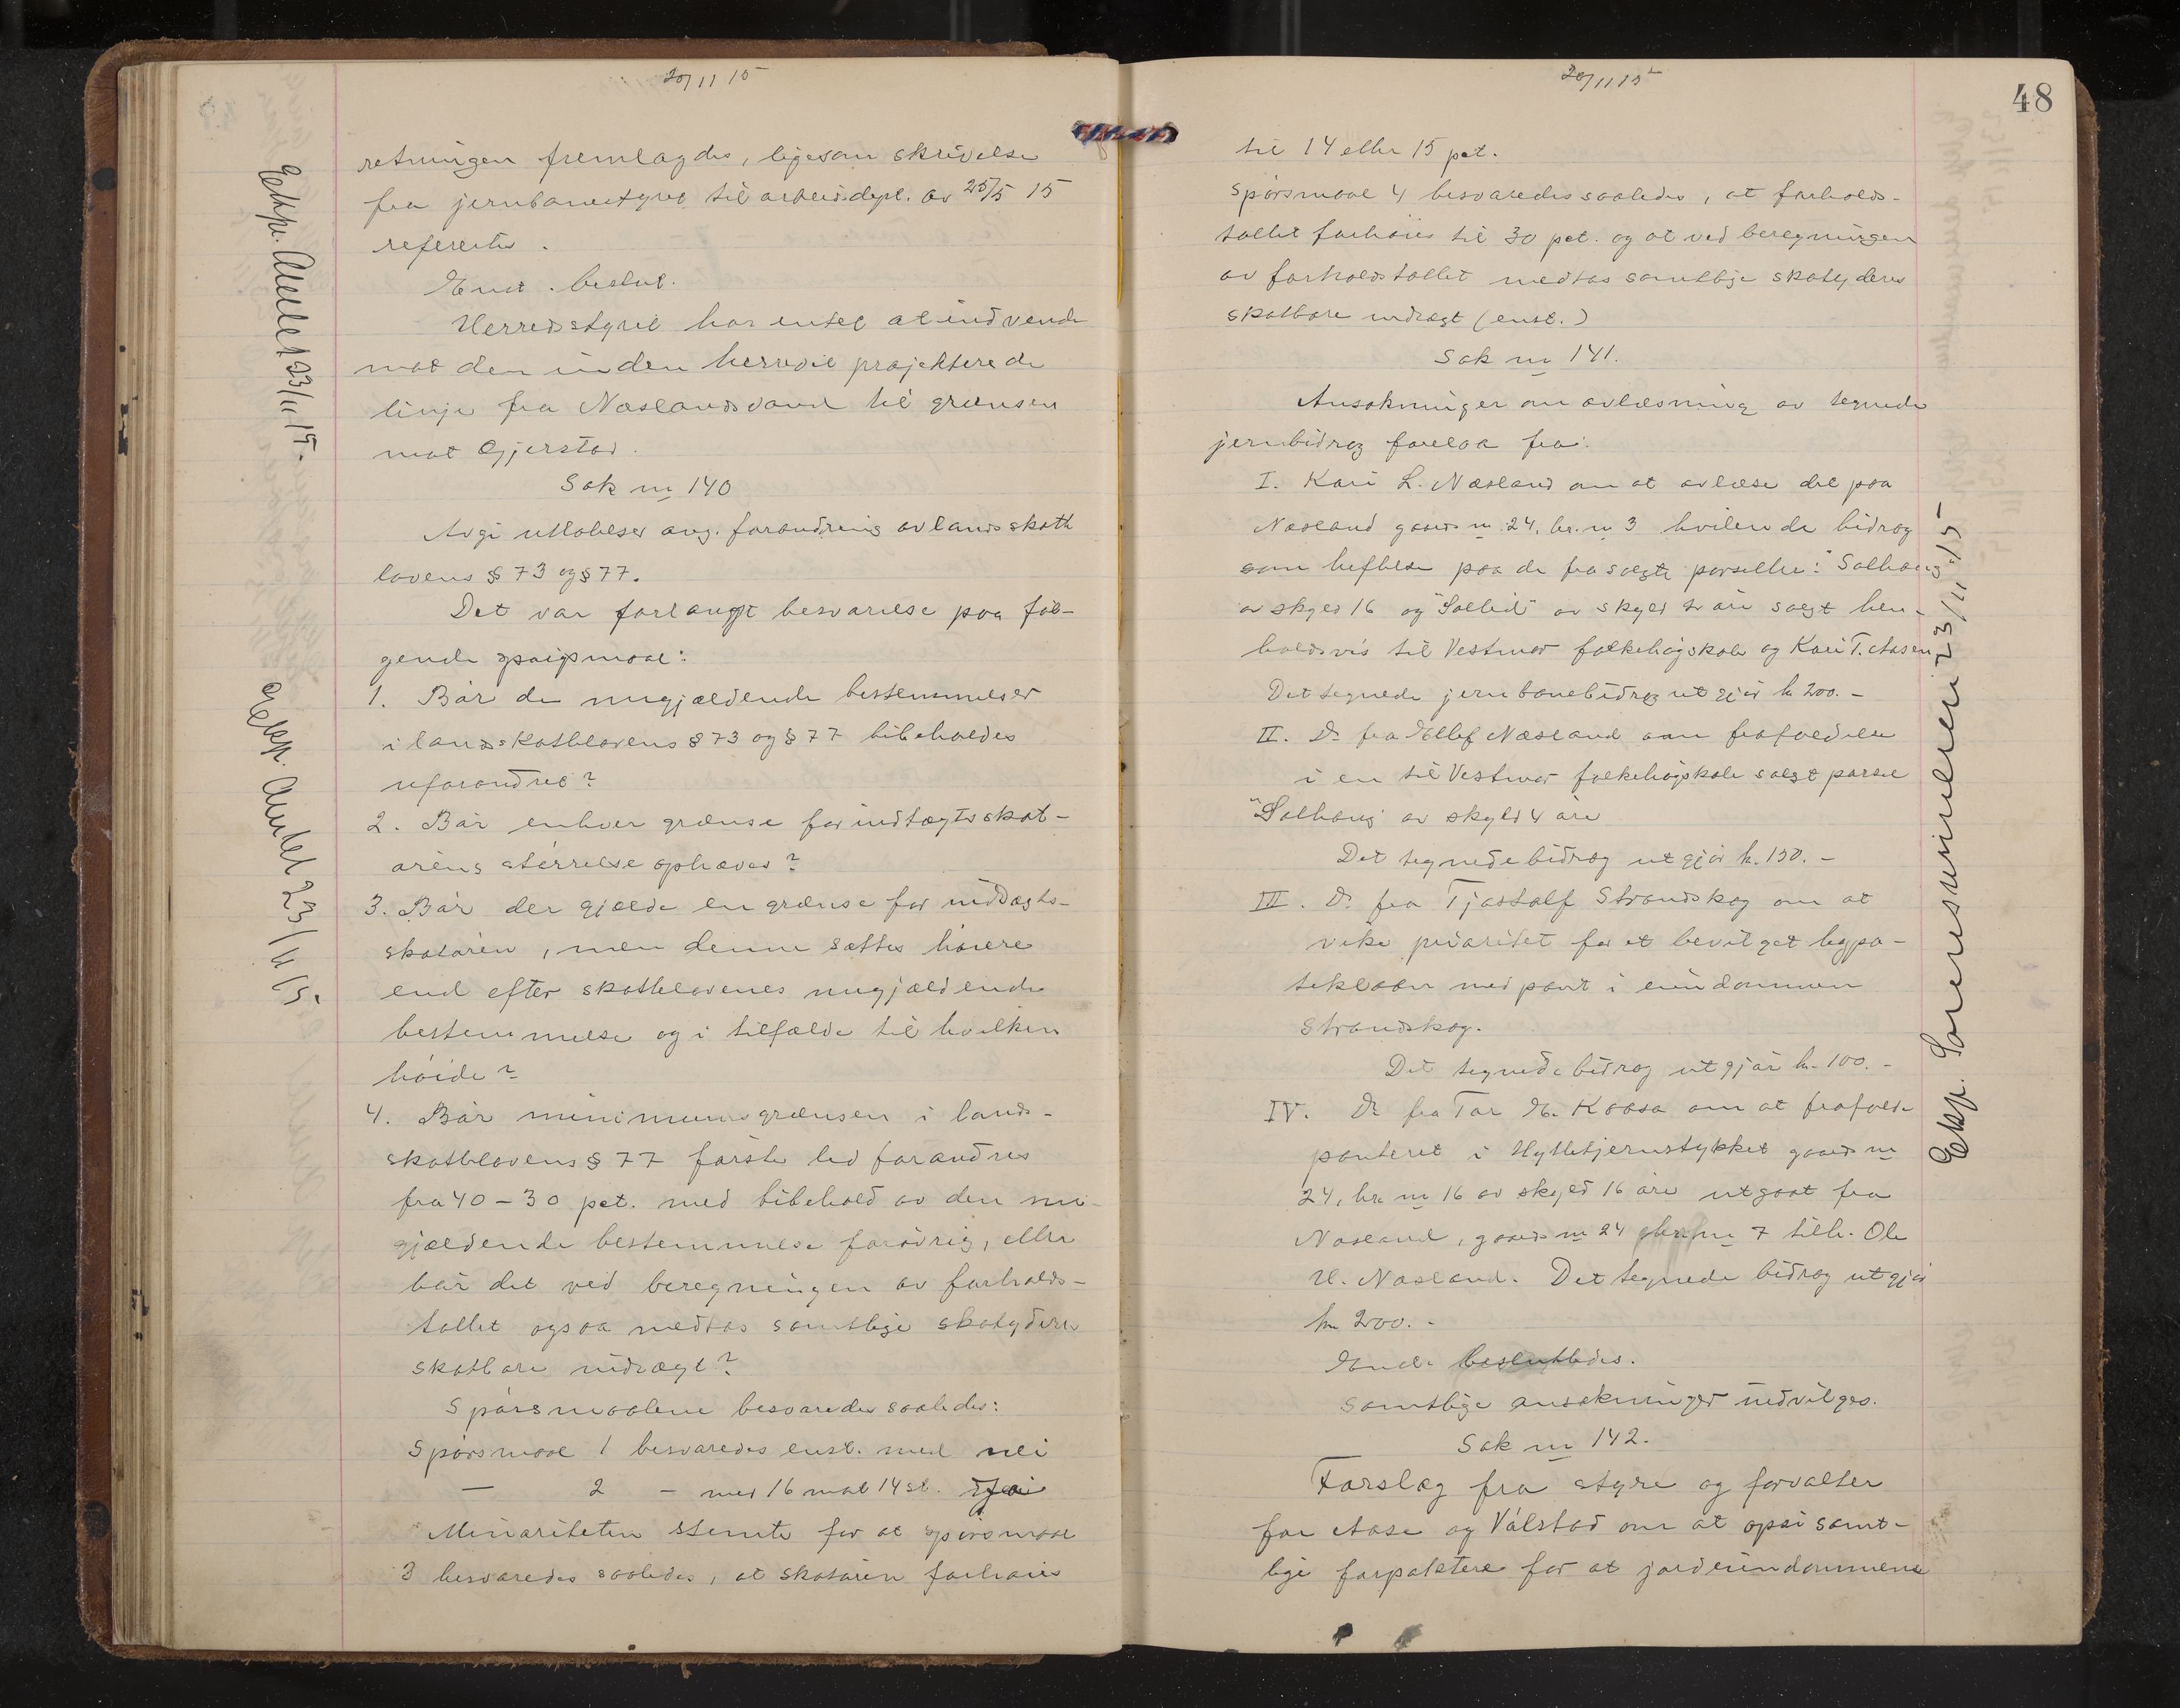 20/11 15
retningen fremlagdes, ligesom skrivelse
fra jernbanestyret til arbeidsdept. av 25/5 15
refereertes.
Enst. beslut.
Herredsstyret har intet at indvende
mot den inden herredet projekterede
linje fra Næslandsvand til grænsen
mot Gjerstad.
Sak nr 140
Avgi uttalelser ang. forandring av landsskatte
lovens § 73 og § 77.
Det var forlangt besvarelse paa føl-
gende spørsmaal:
1. Bør de nugjældende bestemmelser
i landsskattelovens § 73 og § 77 bibeholdes
uforandret?
2. Bør enhver grænse for indtægtsskat-
ørens størrelse ophæves?
3. Bør der gjælde en grænse for indtægts-
skatøren, men denne sættes høiere
end efter skattelovenes nugjældende
bestemmelse og i tilfælde til hvilken
høide?
4. Bør minimumsgrænsen i lands-
skattelovens § 77 første led forandres
fra 40-30 pct. med bibehold av den nu-
gjældende bestemmelse forøvrig, eller
bør det ved beregningen av forholds-
tallet ogsaa medtas samtlige skatyderes
skatbare indtægt?
Spørsmaalene besvaredes saaledes:
Spørsmaal 1 besvaredes enst. med nei
— 2 - med 16 mot 14 st. ja
Minoriteten stemte for at spørsmaal
3 besvaredes saaledes, at skatøren forhøies
Eksp. Amtet 23/11 15.
Eksp. Amtet 23/11 15.
20/11 15
48
til 14 eller 15 pct.
Spørsmaal 4 besvaredes saaledes, at forholds-
tallet forhøies til 30 pct. og at ved beregningen
av forholdstallet medtas samtlige skatyderes
skatbare indtægt (enst.)
Sak nr 141.
Ansøkninger om avløsning av tegnede
jernbidrag forelaa fra:
I. Kari L. Næsland om at avløse det paa
Næsland gaards nr 24, br. nr 3 hvilende bidrag
som heftelse paa de fra solgte parseller: "Solhaug"
av skyld 16 og "Sollid" av skyld 2 øre solgt hen-
holdsvis til Vestmar folkehøgskole og Kari T. Aasen
Det tegnede jernbanebidrag utgjør kr 200.-
II. Do fra Ellef Næsland om frafaldelse
i en til Vestmar folkehøgskole solgt parsel
"Solhaug" av skyld 4 øre
Det tegnede bidrag utgjør kr. 150.-
III. Do fra Tjostolf Strandskog om at
vike prioritet for et bevilget hypo-
teklaan med pant i eiendommen
Strandskog.
Det tegnede bidrag utgjør kr. 100.-
IV. Do fra Tor E. Kaasa om at frafalde
panteret i Hyttetjernstykket gaards nr
24, br. nr 16 av skyld 16 øre utgaat fra
Næsland, gaards nr 24 br nr 7 tilh. Ole
H. Næsland. Det tegnede bidrag utgjør
kr 200.-
Enst. besluttedes.
Samtlige ansøkninger indvilges.
Sak nr 142.
Forslag fra styre og forvalter
for Aase og Vålstad om at opsi samt-
lige forpaktere for at jordeiendommene
Eksp. Sorenskriveren 23/11 15